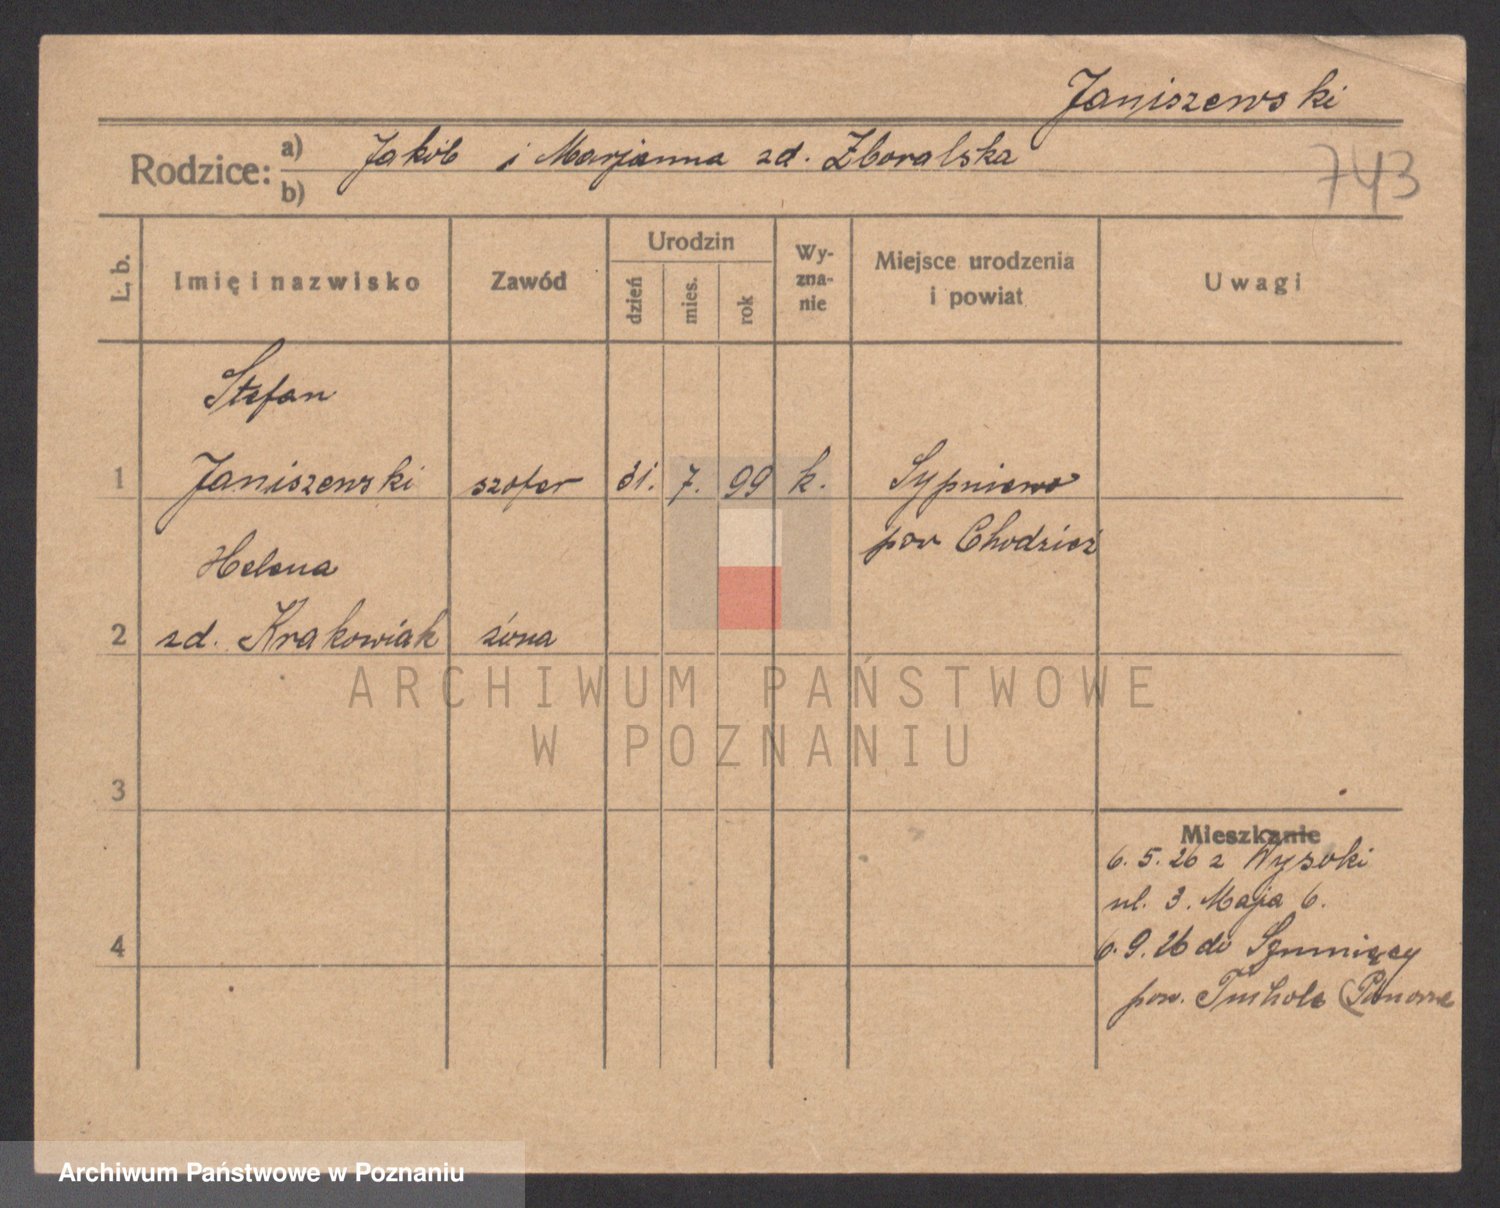 Janiszewski
Rodzice: a) Jakób i Marjanna zd. Zboralska
b)
743
L. b.
Imię i nazwisko
Zawód
Urodzin
dzień
mies.
rok
Wy-
zna-
nie
Miejsce urodzenia
i powiat
Uwagi
Stefan
1 Janiszewski szofer 31. 7. 99 k. Sypniewo
pow Chodzież
Helena
2 zd. Krakowiak żona
ARCHIWUM PAŃSTWOWE
W POZNANIU
3
Mieszkanie
6. 5. 26 z Wysoki
ul. 3. Maja 6.
4
6. 9. 26 do
pow. Tuchole (Pomorze
Archiwum Państwowe w Poznaniu